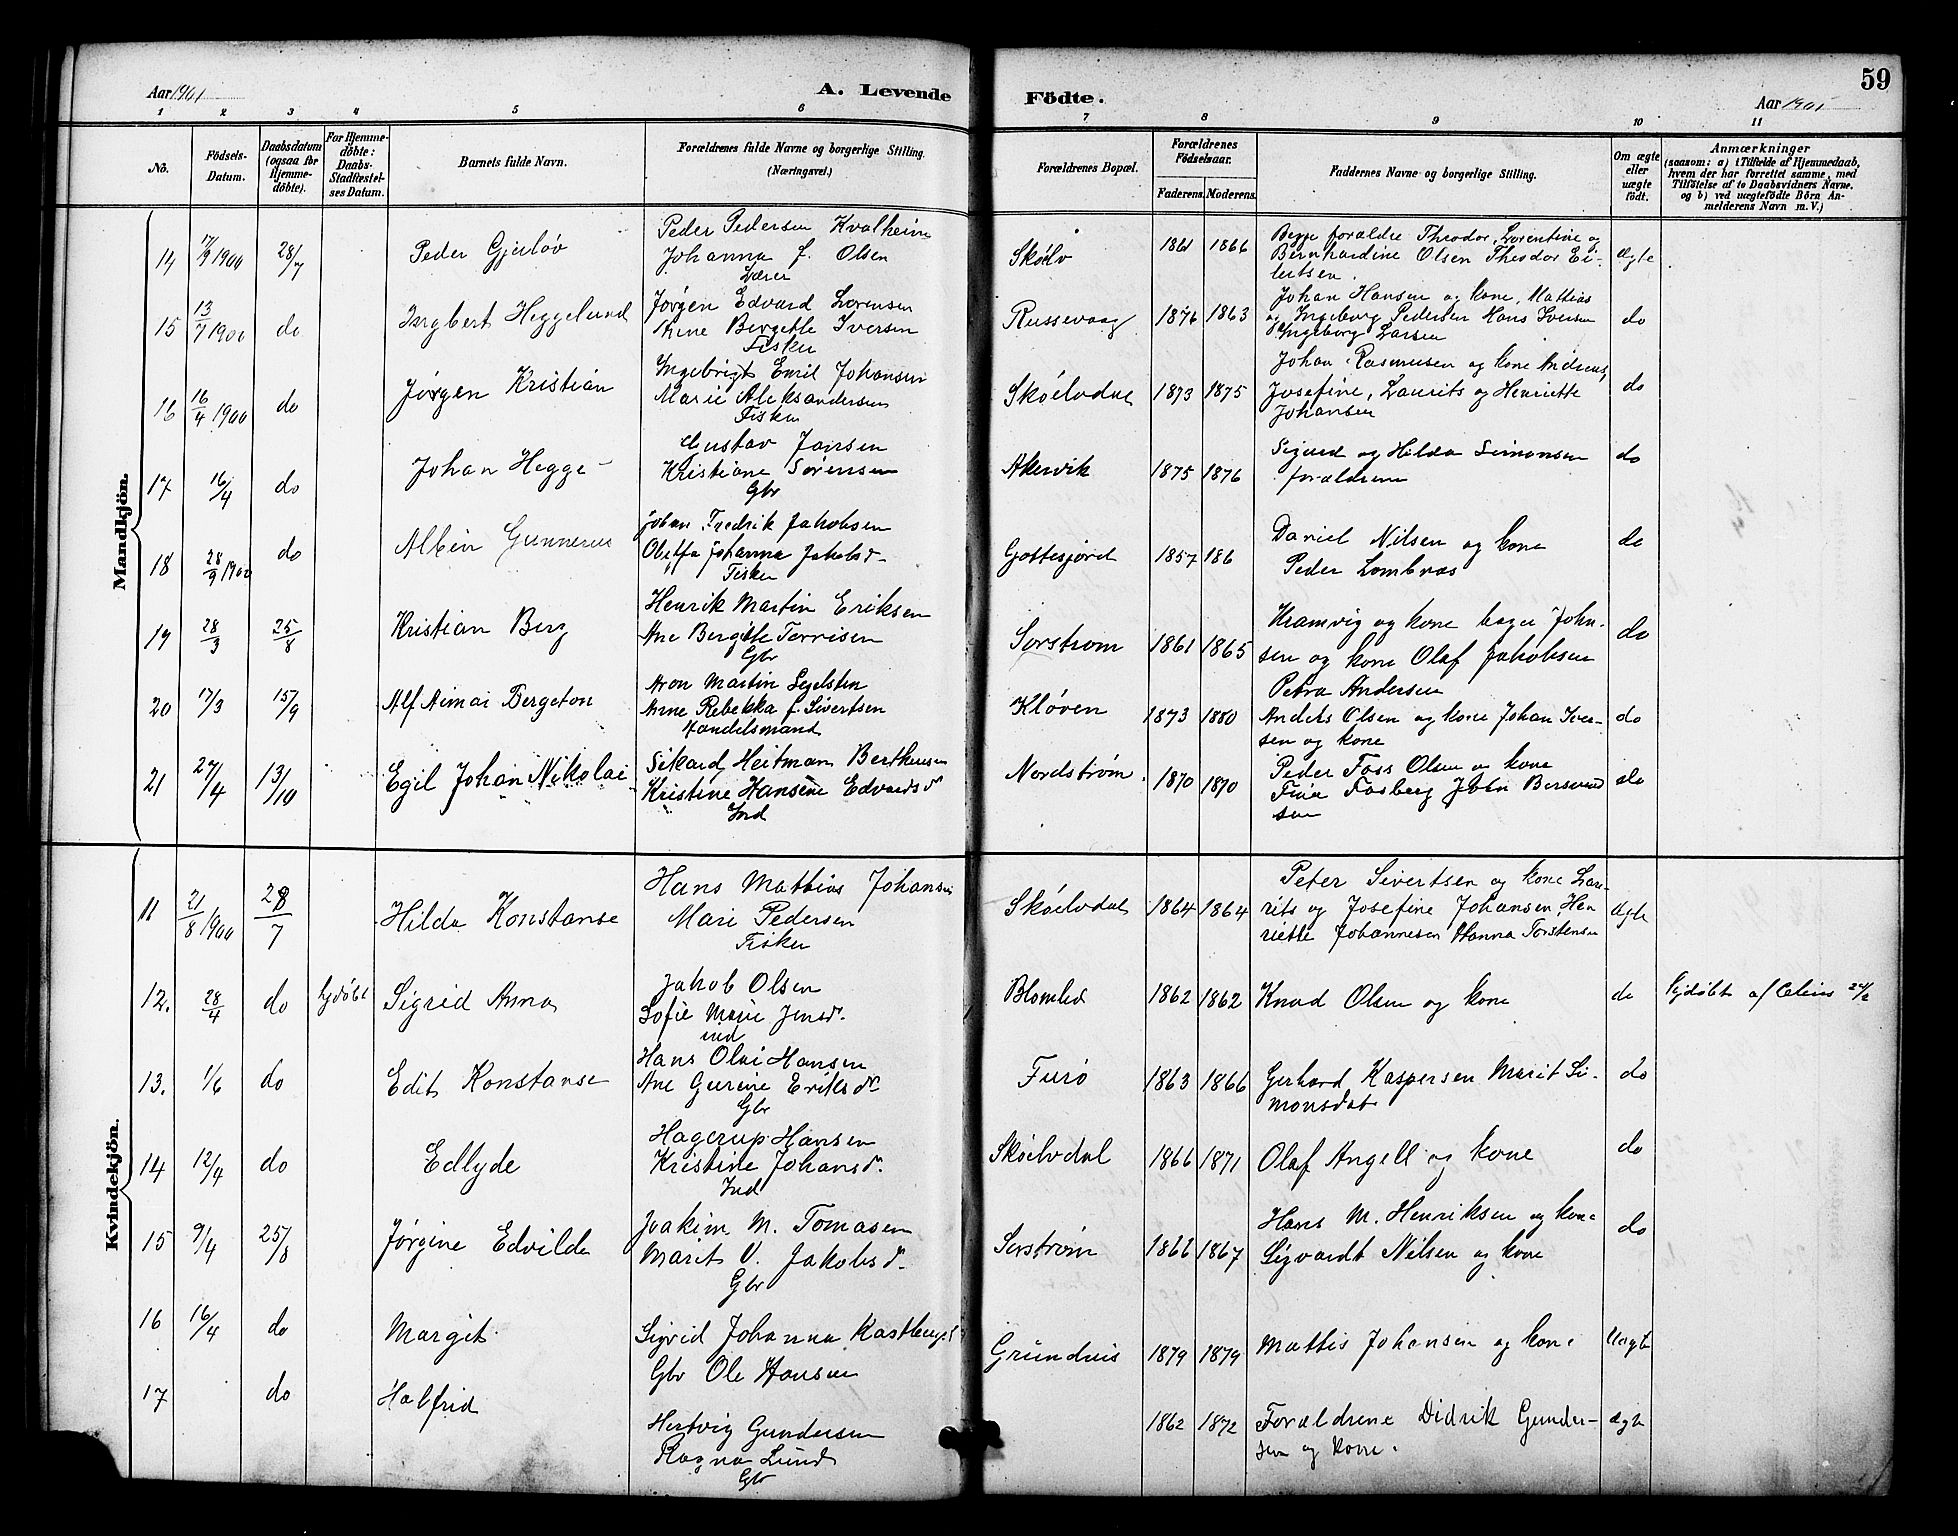 Aar 1901
A. Levende
Födte.
59
Aar 1901
1 2 3 4 5 6 7 8 9 10 11
No.
Födsels-Datum.
Daabsdatum (ogsaa for Hjemmedöbte).
For Hjemmedöbte: Daabs-Stadfæstelses Datum.
Barnets fulde Navn.
Forældrenes fulde Navne og borgerlige Stilling. (Næringsvei.)
Forældrenes Bopæl.
Forældrenes Födselsaar.
Faderens. Moderens.
Faddernes Navne og borgerlige Stilling.
Om ægte eller uægte födt.
Anmærkninger
(saasom: a) i Tilfælde af Hjemmedaab, hvem der har forrettet samme, med Tilföielse af to Daabsvidners Navne, og b) ved uægtefödte Börn Anmelderens Navn m. V.)
Mandkjön.
14 17/9 1900 28/7 Peder Gjeslöv
Peder Pedersen Kvalheim
Johanna f. Olsen
Lærer
Skóelv 1861 1866
Begge forældre Theodor, Lorentine og
Bernhardine Olsen Theodor Ei-
lertsen
Ægte
15 13/7 1900 do Ingbert Heggelund
Jørgen Edvard Lorensen
Anne Bergette Iversen
Fisker
Russevaag 1876 1863
Johan Hansen og kone, Mattias
og Ingeborg Pedersen Hans Iversen
Ingeborg Larsen
do
16 16/4 1900 do Jørgen Kristian
Ingebrigt Emil Johansen
Marie Aleksandersen
Fisker
Skóelvdal 1873 1875
Johan Rasmusen og kone Andreas,
Josefine, Laurits og Henriette
Johansen
do
17 16/4 do Johan Hegge
Gustav Jansen
Kristiane Sørensen
Gbr
Akervik 1875 1876
Sigurd og Hilda Simonsen
forældrene
do
18 28/9 1900 do Albin Gunnerus
Johan Fredrik Jakobsen
Johanna Jakobsd
Fisker
Gottesjord 1857 186
Daniel Nilsen og kone
Peder Lombnæs
do
19 28/3 25/8 Kristian Berg
Henrik Martin Eriksen
Ane Bergitte Torrisen
Gbr
Sorstrom 1861 1865
Kramvig og kone bager John-
sen og kone Olaf Jakobsen
Petra Andersen
do
20 17/3 15/9 Alf Aimar Bergeton
Aron Martin Segelsten
Anne Rebekka f. Sivertsen
Handelsmand
Kløven 1873 1880
Anders Olsen og kone Johan Iver-
sen og kone
do
21 27/4 13/10 Egil Johan Nikolai
Sikard Heitman Berthusen
Kristine Hansine Edvardsd
Ind
Nordstrøm 1870 1870
Peder Foss Olsen og kone
Fosberg
sen
do
Kvindekjön.
11 21/8 1900 28/7 Hilda Konstanse
Hans Mattias Johansen
Mari Pedersen
Fisker
Skóelvdal 1864 1864
Peter Sivertsen og kone Lau-
rits og Josefine Johansen, Hen
riette Johannesen Hanna Torstensen
Ægte
12. 28/4 do hjdøbt Sigrid Anna
Jakob Olsen
Sofie Marie Jensd.
ind
Blomlid 1862 1862
Knud Olsen og kone
do
hjdøbt af
13. 1/6 do Edit Konstanse
Hans Olai Hansen
Ane Gurine Eriksd
Gbr
Furø 1863 1866
Gerhard Kaspersen Marit Si-
monsdat
do
14 12/4 do Edlyde
Hagerup Hansen
Kristine Johansd.
Ind
Skóelvdal 1866 1871
Olaf Angell og kone
do
15 9/4 25/8 Jørgine Edvilda
Joakim M. Tomasen
Marit V. Jakobsd.
Gbr
Sorstrøm 1866 1867
Hans M. Henriksen og kone
Sigvardt Nilsen og kone
do
16 16/4 do Margit
Sigrid Johanna Kastberg
Gbr Ole Hansen
Grundnes 1879 1879
Mattis Johansen og kone
Uægte
17 do Halfrid
Hertvig Gundersen
Ragna Lund
Gbr
1862 1872
Forældrene Didrik Gunder-
sen og kone.
ægte